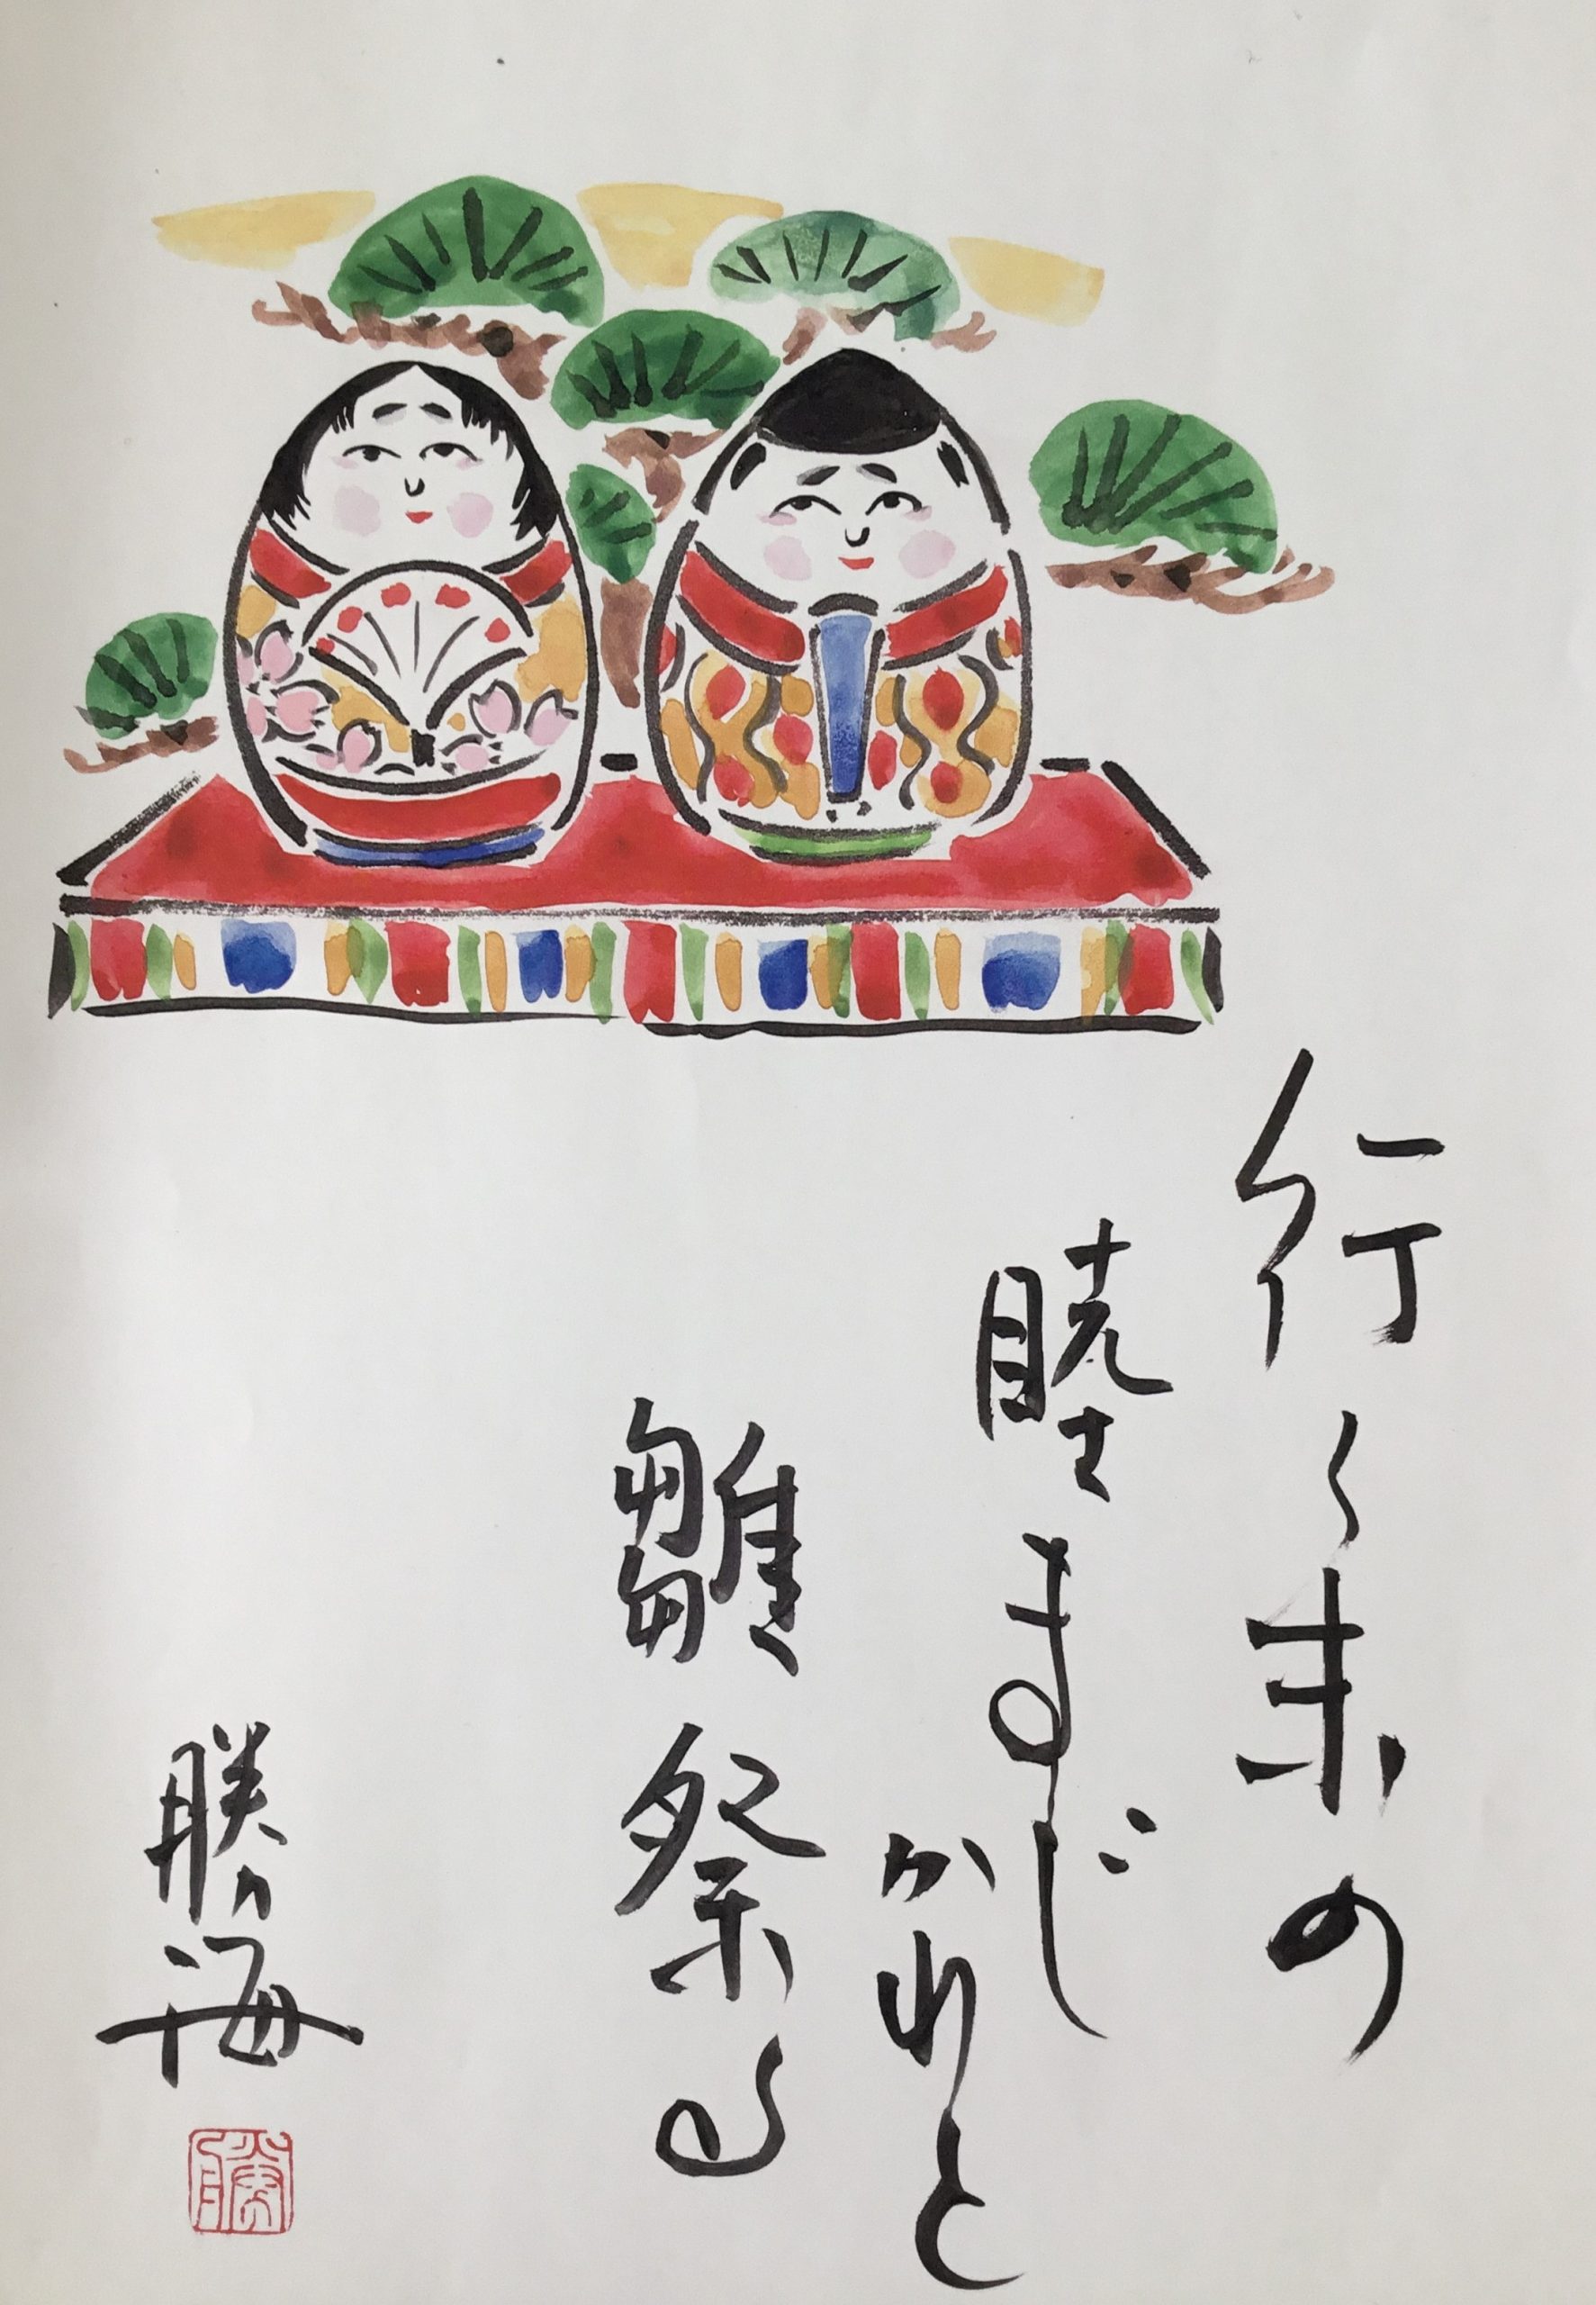 行く末の
睦まじ
かれと
雛祭る
勝海
勝